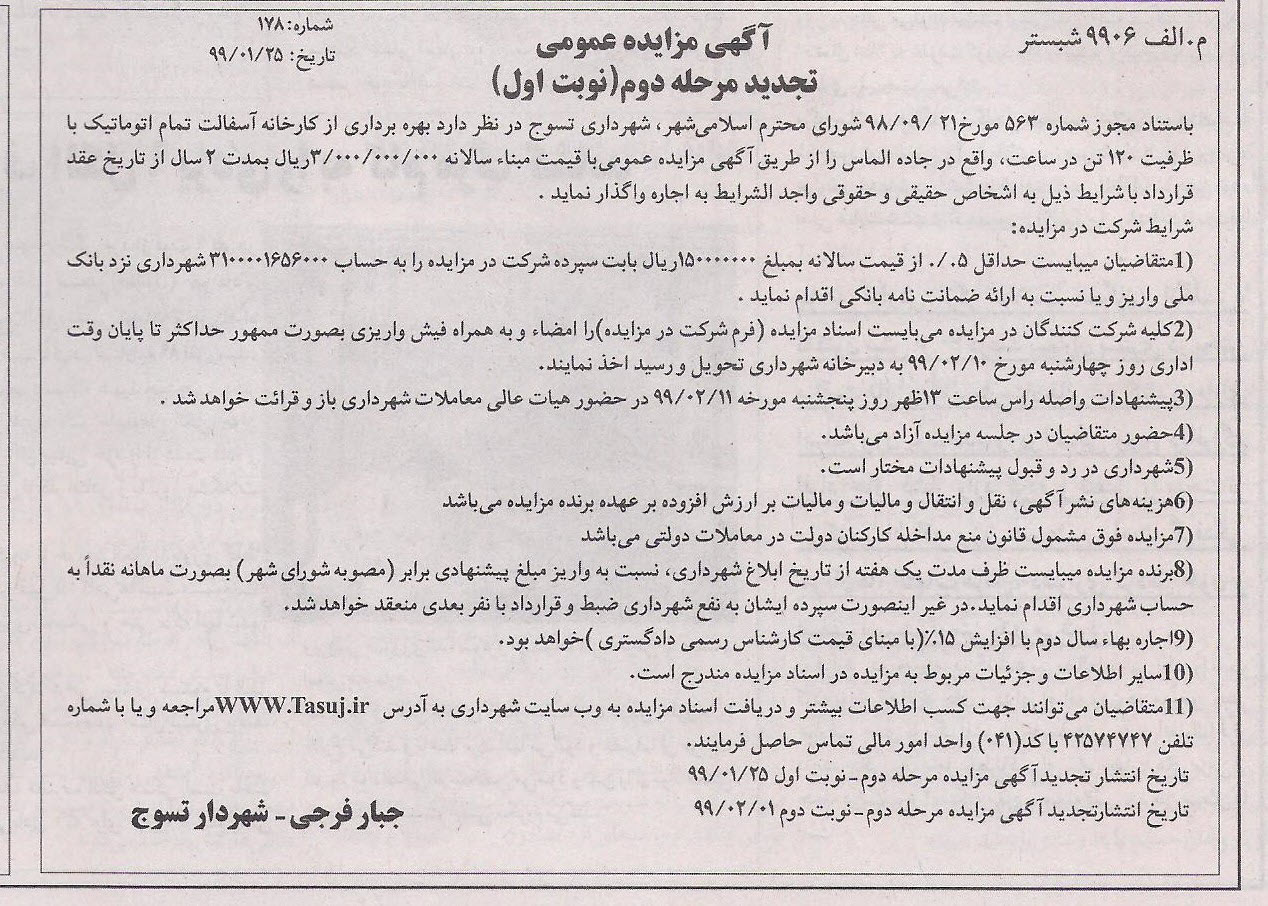 م.الف ۹۹۰۶ شبستر
شماره: ۱۷۸
تاریخ: ۹۹/۰۱/۲۵
آگهی مزایده عمومی
تجدید مرحله دوم(نوبت اول)
باستناد مجوز شماره ۵۶۳ مورخ۲۱ /۹۸/۰۹ شورای محترم اسلامی‌شهر، شهرداری تسوج در نظر دارد بهره برداری از کارخانه آسفالت تمام اتوماتیک با
ظرفیت ۱۲۰ تن در ساعت، واقع در جاده الماس را از طریق آگهی مزایده عمومی‌با قیمت مبناء سالانه ۳/۰۰۰/۰۰۰/۰۰۰ریال بمدت ۲ سال از تاریخ عقد
قرارداد با شرایط ذیل به اشخاص حقیقی و حقوقی واجد الشرایط به اجاره واگذار نماید .
شرایط شرکت در مزایده:
1)متقاضیان میبایست حداقل ۵./. از قیمت سالانه بمبلغ ۱۵۰۰۰۰۰۰۰ریال بابت سپرده شرکت در مزایده را به حساب ۳۱۰۰۰۰۱۶۵۶۰۰۰ شهرداری نزد بانک
ملی واریز و یا نسبت به ارائه ضمانت نامه بانکی اقدام نماید .
2)کلیه شرکت کنندگان در مزایده می‌بایست اسناد مزایده (فرم شرکت در مزایده)را امضاء و به همراه فیش واریزی بصورت ممهور حداکثر تا پایان وقت
اداری روز چهارشنبه مورخ ۹۹/۰۲/۱۰ به دبیرخانه شهرداری تحویل و رسید اخذ نمایند.
3)پیشنهادات واصله راس ساعت ۱۳ظهر روز پنجشنبه مورخه ۹۹/۰۲/۱۱ در حضور هیات عالی معاملات شهرداری باز و قرائت خواهد شد .
4)حضور متقاضیان در جلسه مزایده آزاد می‌باشد.
5)شهرداری در رد و قبول پیشنهادات مختار است.
6)هزینه‌های نشر آگهی، نقل و انتقال و مالیات و مالیات بر ارزش افزوده بر عهده برنده مزایده می‌باشد
7)مزایده فوق مشمول قانون منع مداخله کارکنان دولت در معاملات دولتی می‌باشد
8)برنده مزایده میبایست ظرف مدت یک هفته از تاریخ ابلاغ شهرداری، نسبت به واریز مبلغ پیشنهادی برابر (مصوبه شورای شهر) بصورت ماهانه نقداً به
حساب شهرداری اقدام نماید.در غیر اینصورت سپرده ایشان به نفع شهرداری ضبط و قرارداد با نفر بعدی منعقد خواهد شد.
9)اجاره بهاء سال دوم با افزایش ۱۵٪(با مبنای قیمت کارشناس رسمی دادگستری )خواهد بود.
10)سایر اطلاعات و جزئیات مربوط به مزایده در اسناد مزایده مندرج است.
11)متقاضیان می‌توانند جهت کسب اطلاعات بیشتر و دریافت اسناد مزایده به وب سایت شهرداری به آدرس WWW.Tasuj.irمراجعه و یا با شماره
تلفن ۴۲۵۷۴۷۴۷ با کد(۰۴۱) واحد امور مالی تماس حاصل فرمایند.
تاریخ انتشار تجدید آگهی مزایده مرحله دوم-نوبت اول ۹۹/۰۱/۲۵
تاریخ انتشارتجدید آگهی مزایده مرحله دوم-نوبت دوم ۹۹/۰۲/۰۱
جبار فرجی- شهردار تسوج